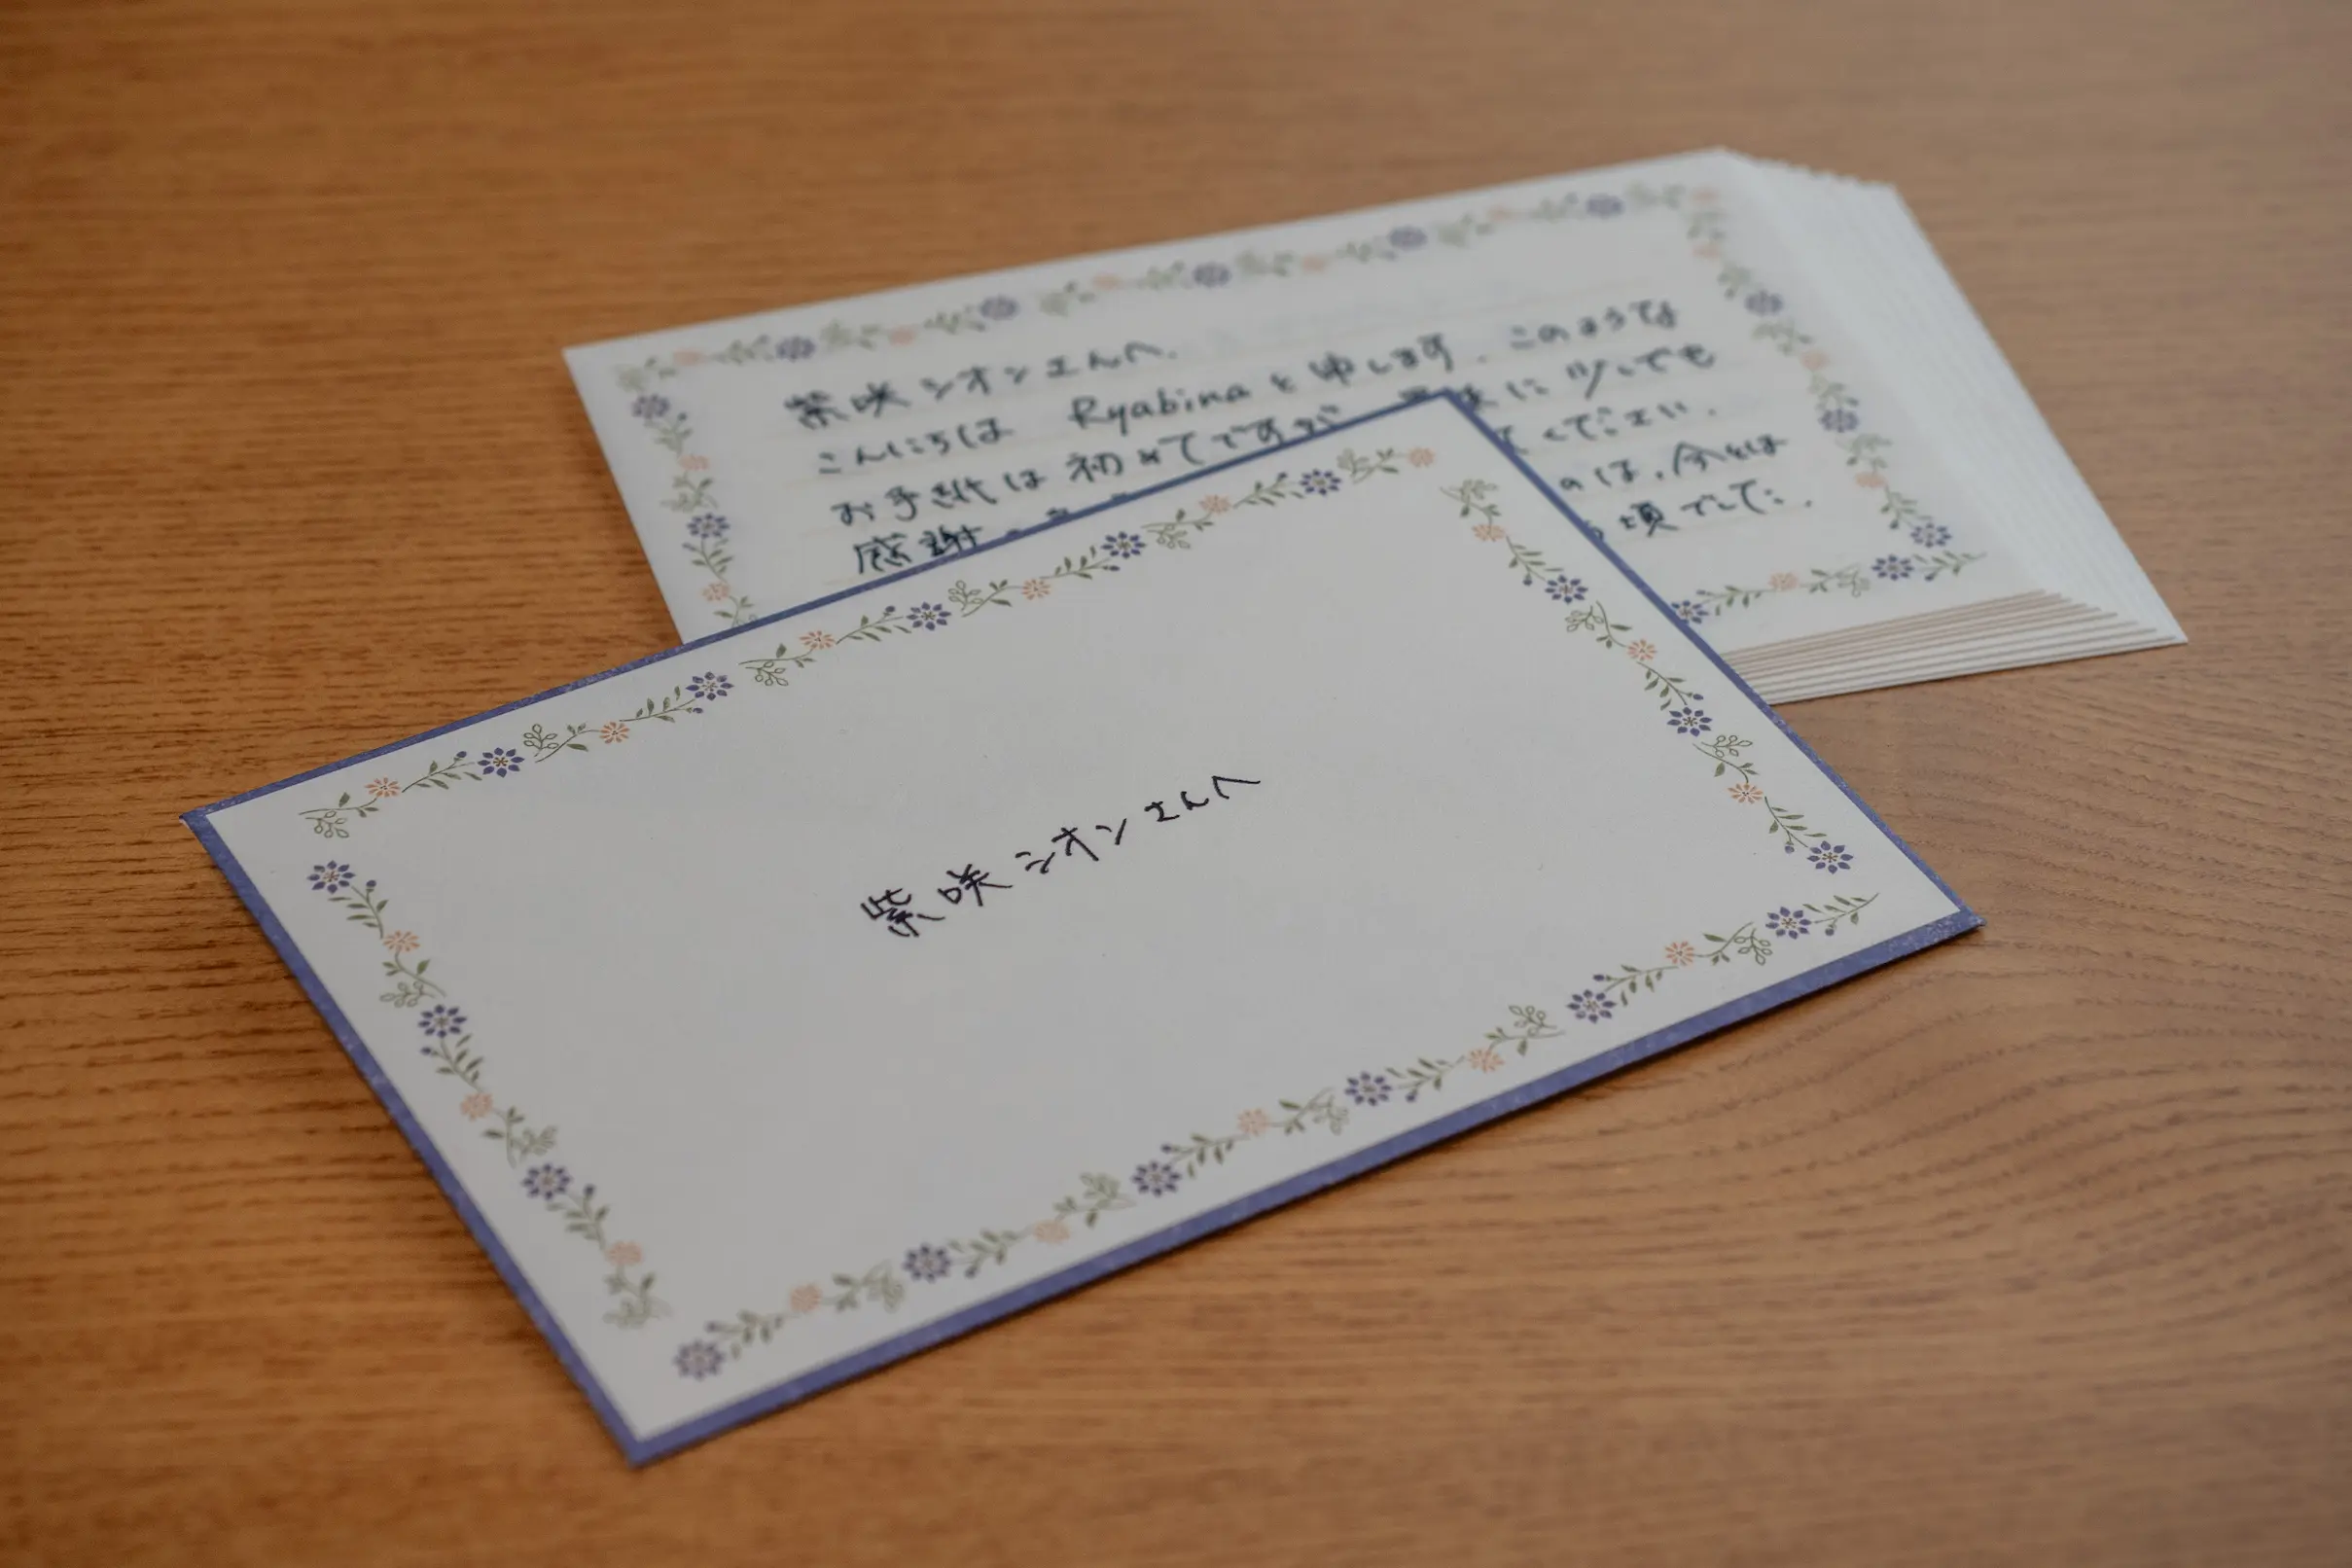 紫咲シオンさんへ
紫咲シオンさんへ.
こんにちは Ryabinaと申します. このような
お手紙は初めてですが 少しでも
感謝 てください.
のは、今とは
る頃でした.